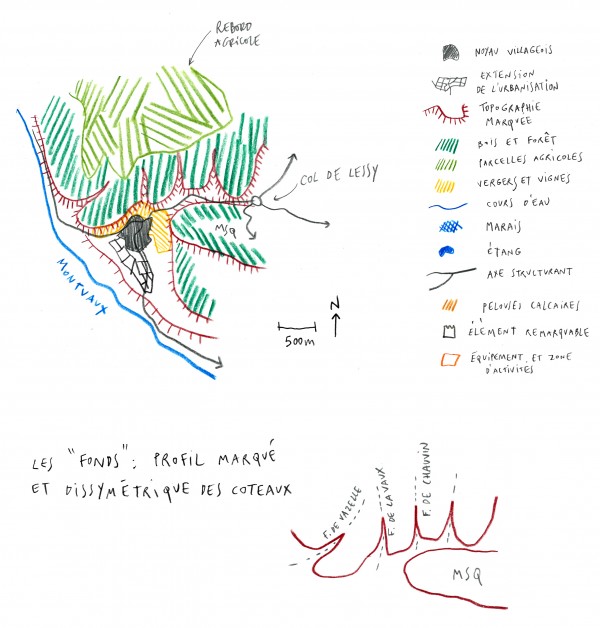 REBORD
AGRICOLE
COL DE LESSY
MSQ
MONTVAUX
N
500m
NOYAU VILLAGEOIS
EXTENSION
DE L'URBANISATION
TOPOGRAPHIE
MARQUEE
BOIS ET FORÊT
PARCELLES AGRICOLES
VERGERS ET VIGNES
COURS D'EAU
MARAIS
ÉTANG
AXE STRUCTURANT
PELOUSES CALCAIRES
ÉLÉMENT REMARQUABLE
ÉQUIPEMENT ET ZONE
D'ACTIVITÉS
LES "FONDS" : PROFIL MARQUÉ
ET DISSYMÉTRIQUE DES COTEAUX
F. DE VAZELLE
F. DE LAVAUX
F. DE CHAUVIN
MSQ